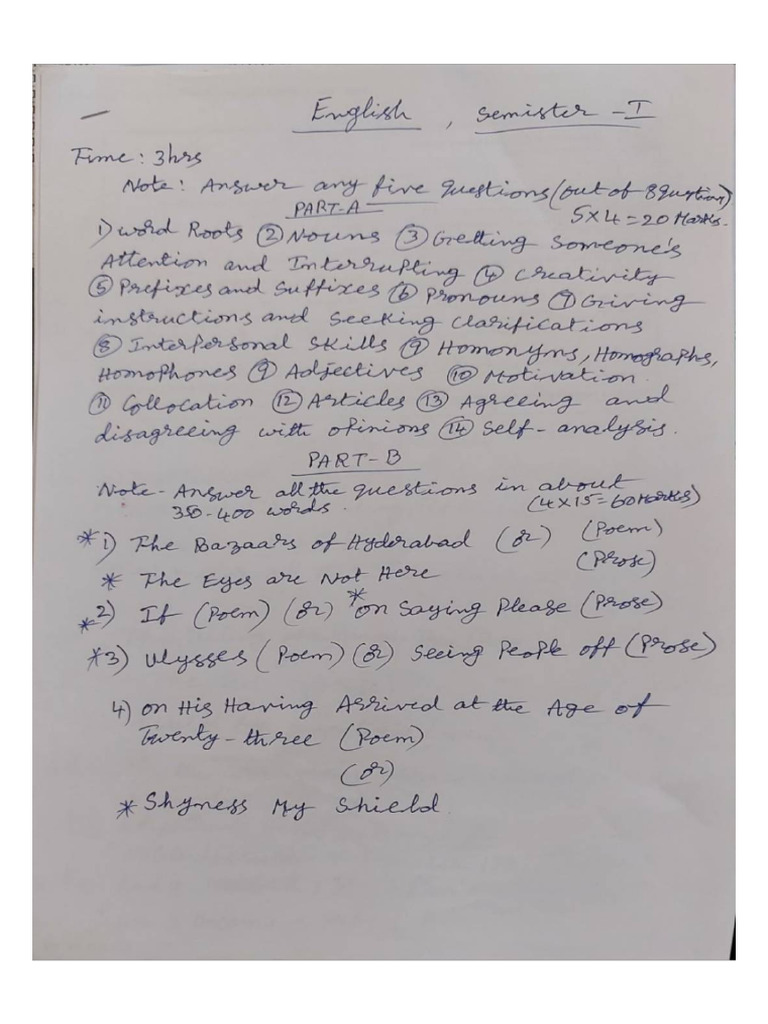 English, Semister - I
Time: 3hrs
Note: Answer any five questions (out of 8 question)
PART-A
5x4=20 Marks.
1) word Roots ② Nouns ③ Gretting Someone's
Attention and Interrupting ④ Creativity
⑤ Prefixes and Suffixes ⑥ Pronouns ⑦ Giving
instructions and seeking clarifications
⑧ Interpersonal Skills ⑨ Homonyms, Homographs,
Homophones ⑨ Adjectives ⑩ Motivation.
⑪ Collocation ⑫ Articles ⑬ Agreeing and
disagreeing with opinions ⑭ Self-analysis.
PART-B
Note - Answer all the questions in about
350-400 words. (4x15=60 Marks)
*1) The Bazaars of Hyderabad (or) (Poem)
* The Eyes are Not Here (Prose)
*2) If (Poem) (or) * on Saying Please (Prose)
*3) Ulysses (Poem) (or) Seeing People off (Prose)
4) on His Having Arrived at the Age of
Twenty-three (Poem)
(or)
* Shyness My Shield.